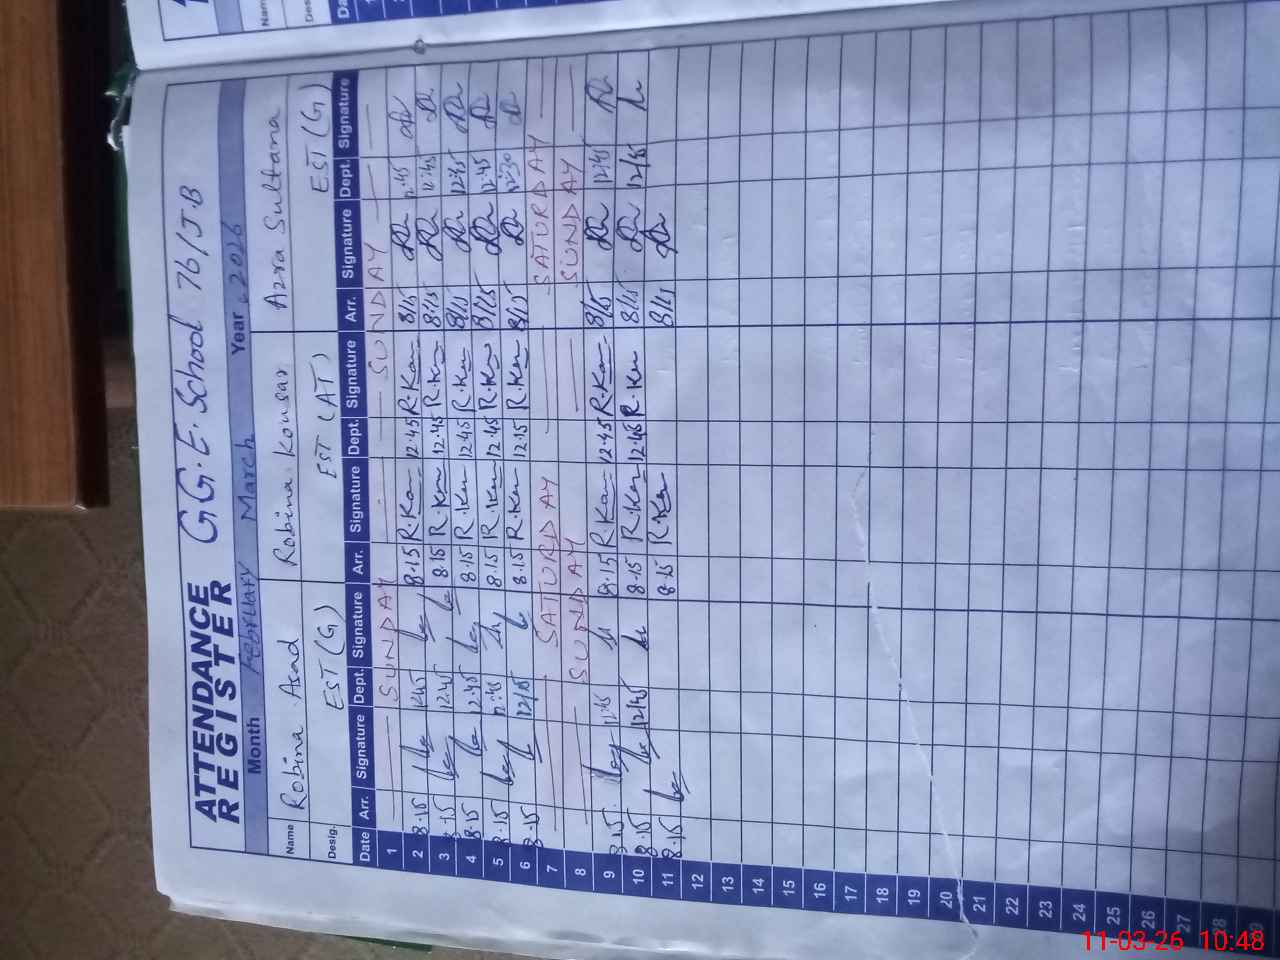 ATTENDANCE REGISTER GG.E.School 76/J.B
Month February March Year 2026
Name Robina Asad Robina Kousar Azra Sultana
Desig. EST (G) EST (AT) EST (G)
Date Arr. Signature Dept. Signature Arr. Signature Dept. Signature Arr. Signature Dept. Signature
1 SUNDAY SUNDAY
2 8.15 12:45 8.15 R.Kou 12.45 R.Kou 8/15 12:45
3 8.15 12:45 8.15 R.Kou 12.45 R.Kou 8/15 12:45
4 8.15 12:45 8.15 R.Kou 12.45 R.Kou 8/15 12:45
5 8.15 12:45 8.15 R.Kou 12.45 R.Kou 8/15 12:45
6 8.15 12/15 8.15 R.Kou 12.15 R.Kou 8/15 12:30
7 SATURDAY SATURDAY
8 SUNDAY SUNDAY
9 8.15 12:45 8.15 R.Kou 12.45 R.Kou 8/15 12:45
10 8.15 12/45 8.15 R.Kou 12.45 R.Kou 8/15 12/45
11 8.15 8.15 R.Kou 8/15
12
13
14
15
16
17
18
19
20
21
22
23
24
25
26
27
28
29
11-03-26 10:48